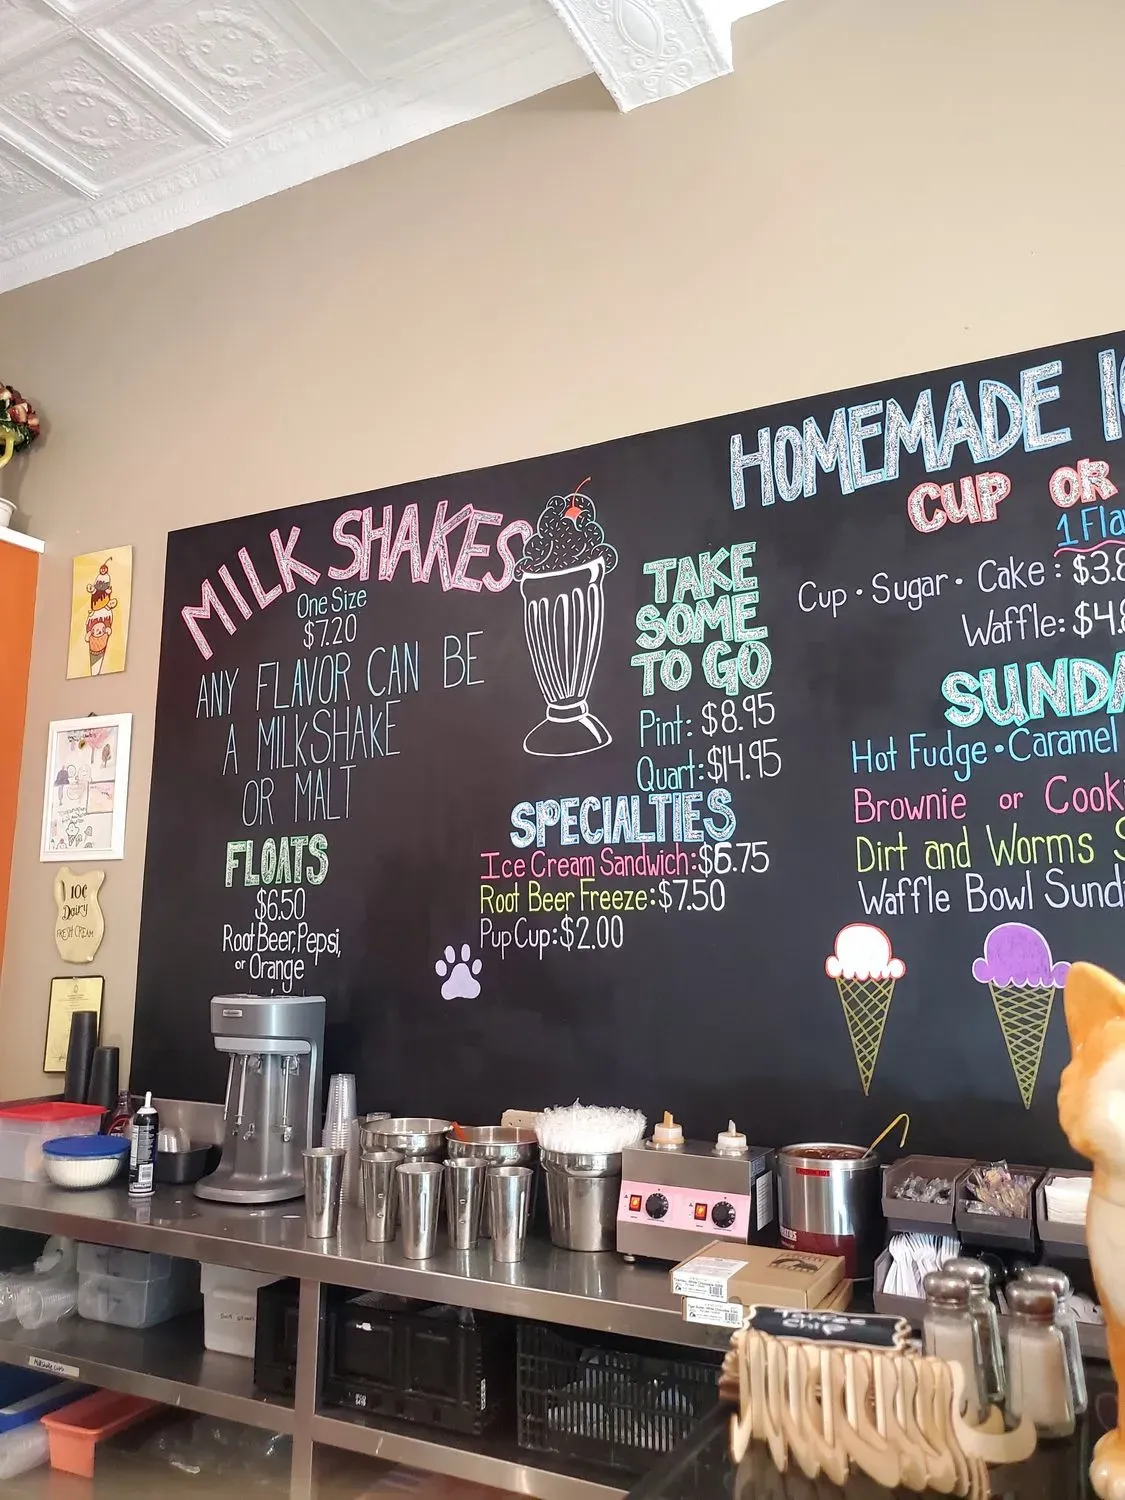 MILK SHAKES
One Size
$7.20
ANY FLAVOR CAN BE
A MILKSHAKE
OR MALT
FLOATS
$6.50
Root Beer, Pepsi,
or Orange
TAKE
SOME
TO GO
Pint: $8.95
Quart: $14.95
SPECIALTIES
Ice Cream Sandwich: $6.75
Root Beer Freeze: $7.50
Pup Cup: $2.00
HOMEMADE
CUP OR
1 Fla
Cup • Sugar • Cake: $3.8
Waffle: $4.8
SUNDA
Hot Fudge • Caramel
Brownie or Cooki
Dirt and Worms S
Waffle Bowl Sund
10¢
Dairy
FRESH CREAM
Milkshake Cups